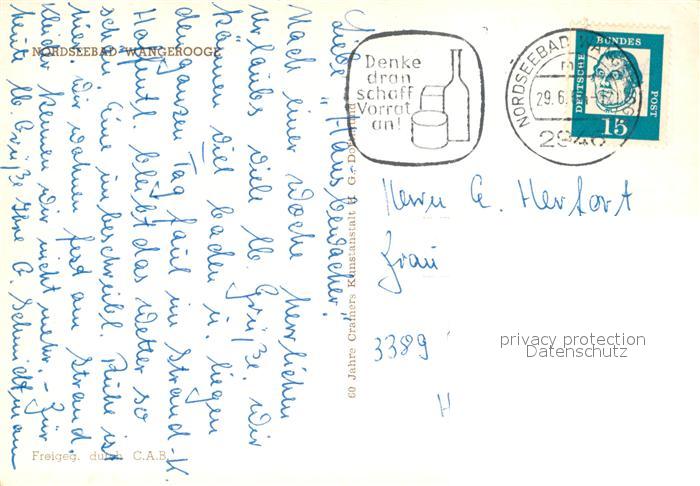 NORDSEEBAD WANGEROOGE
Liebe "Hausbewacher"!
Nach einer Woche herrlichen
Urlaubs viele lb. Grüße. Wir
können viel baden u. liegen
den ganzen Tag faul im Strand-K.
Hoffentl. bleibt das Wetter so
schön. Eine unbeschreibl. Ruhe ist
hier. Wir wohnen fest am Strand.
Kleider kennen wir nicht mehr. - Für
heute lb. Grüße Ihre G. Schmidtmann
Freigeg. durch C.A.B.
60 Jahre Cramers Kunstanstalt KG. Dortmund
Denke
dran
schaff
Vorrat
an!
NORDSEEBAD WANGEROOGE
29.6.
2946
DEUTSCHE BUNDESPOST
15
Herrn G. Herfort
Frau
3389
H
privacy protection
Datenschutz